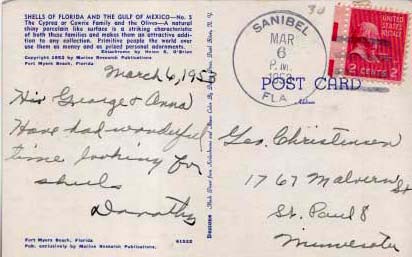 SHELLS OF FLORIDA AND THE GULF OF MEXICO—No. 3
The Cyprea or Cowrie Family and the Olives—A natural
shiny porcelain like surface is a striking characteristic
of both these families and makes them an attractive addi-
tion to any collection. Primitive people the world over
use them as money and as prized personal adornments.
Ektachrome by Henn E. O'Brien
Copyright 1952 by Marine Research Publications
Fort Myers Beach, Florida
March 6, 1953
Hi George & Anna
Have had wonderful
time looking for
shells
Dorothy
Fort Myers Beach, Florida
Pub. exclusively by Marine Research Publications.
61522
SANIBEL
MAR
6
P.M.
1953
FLA.
2 CENTS 2
POST CARD
Address
Geo. Christensen
1767 Malvern St
St. Paul 8
Minnesota